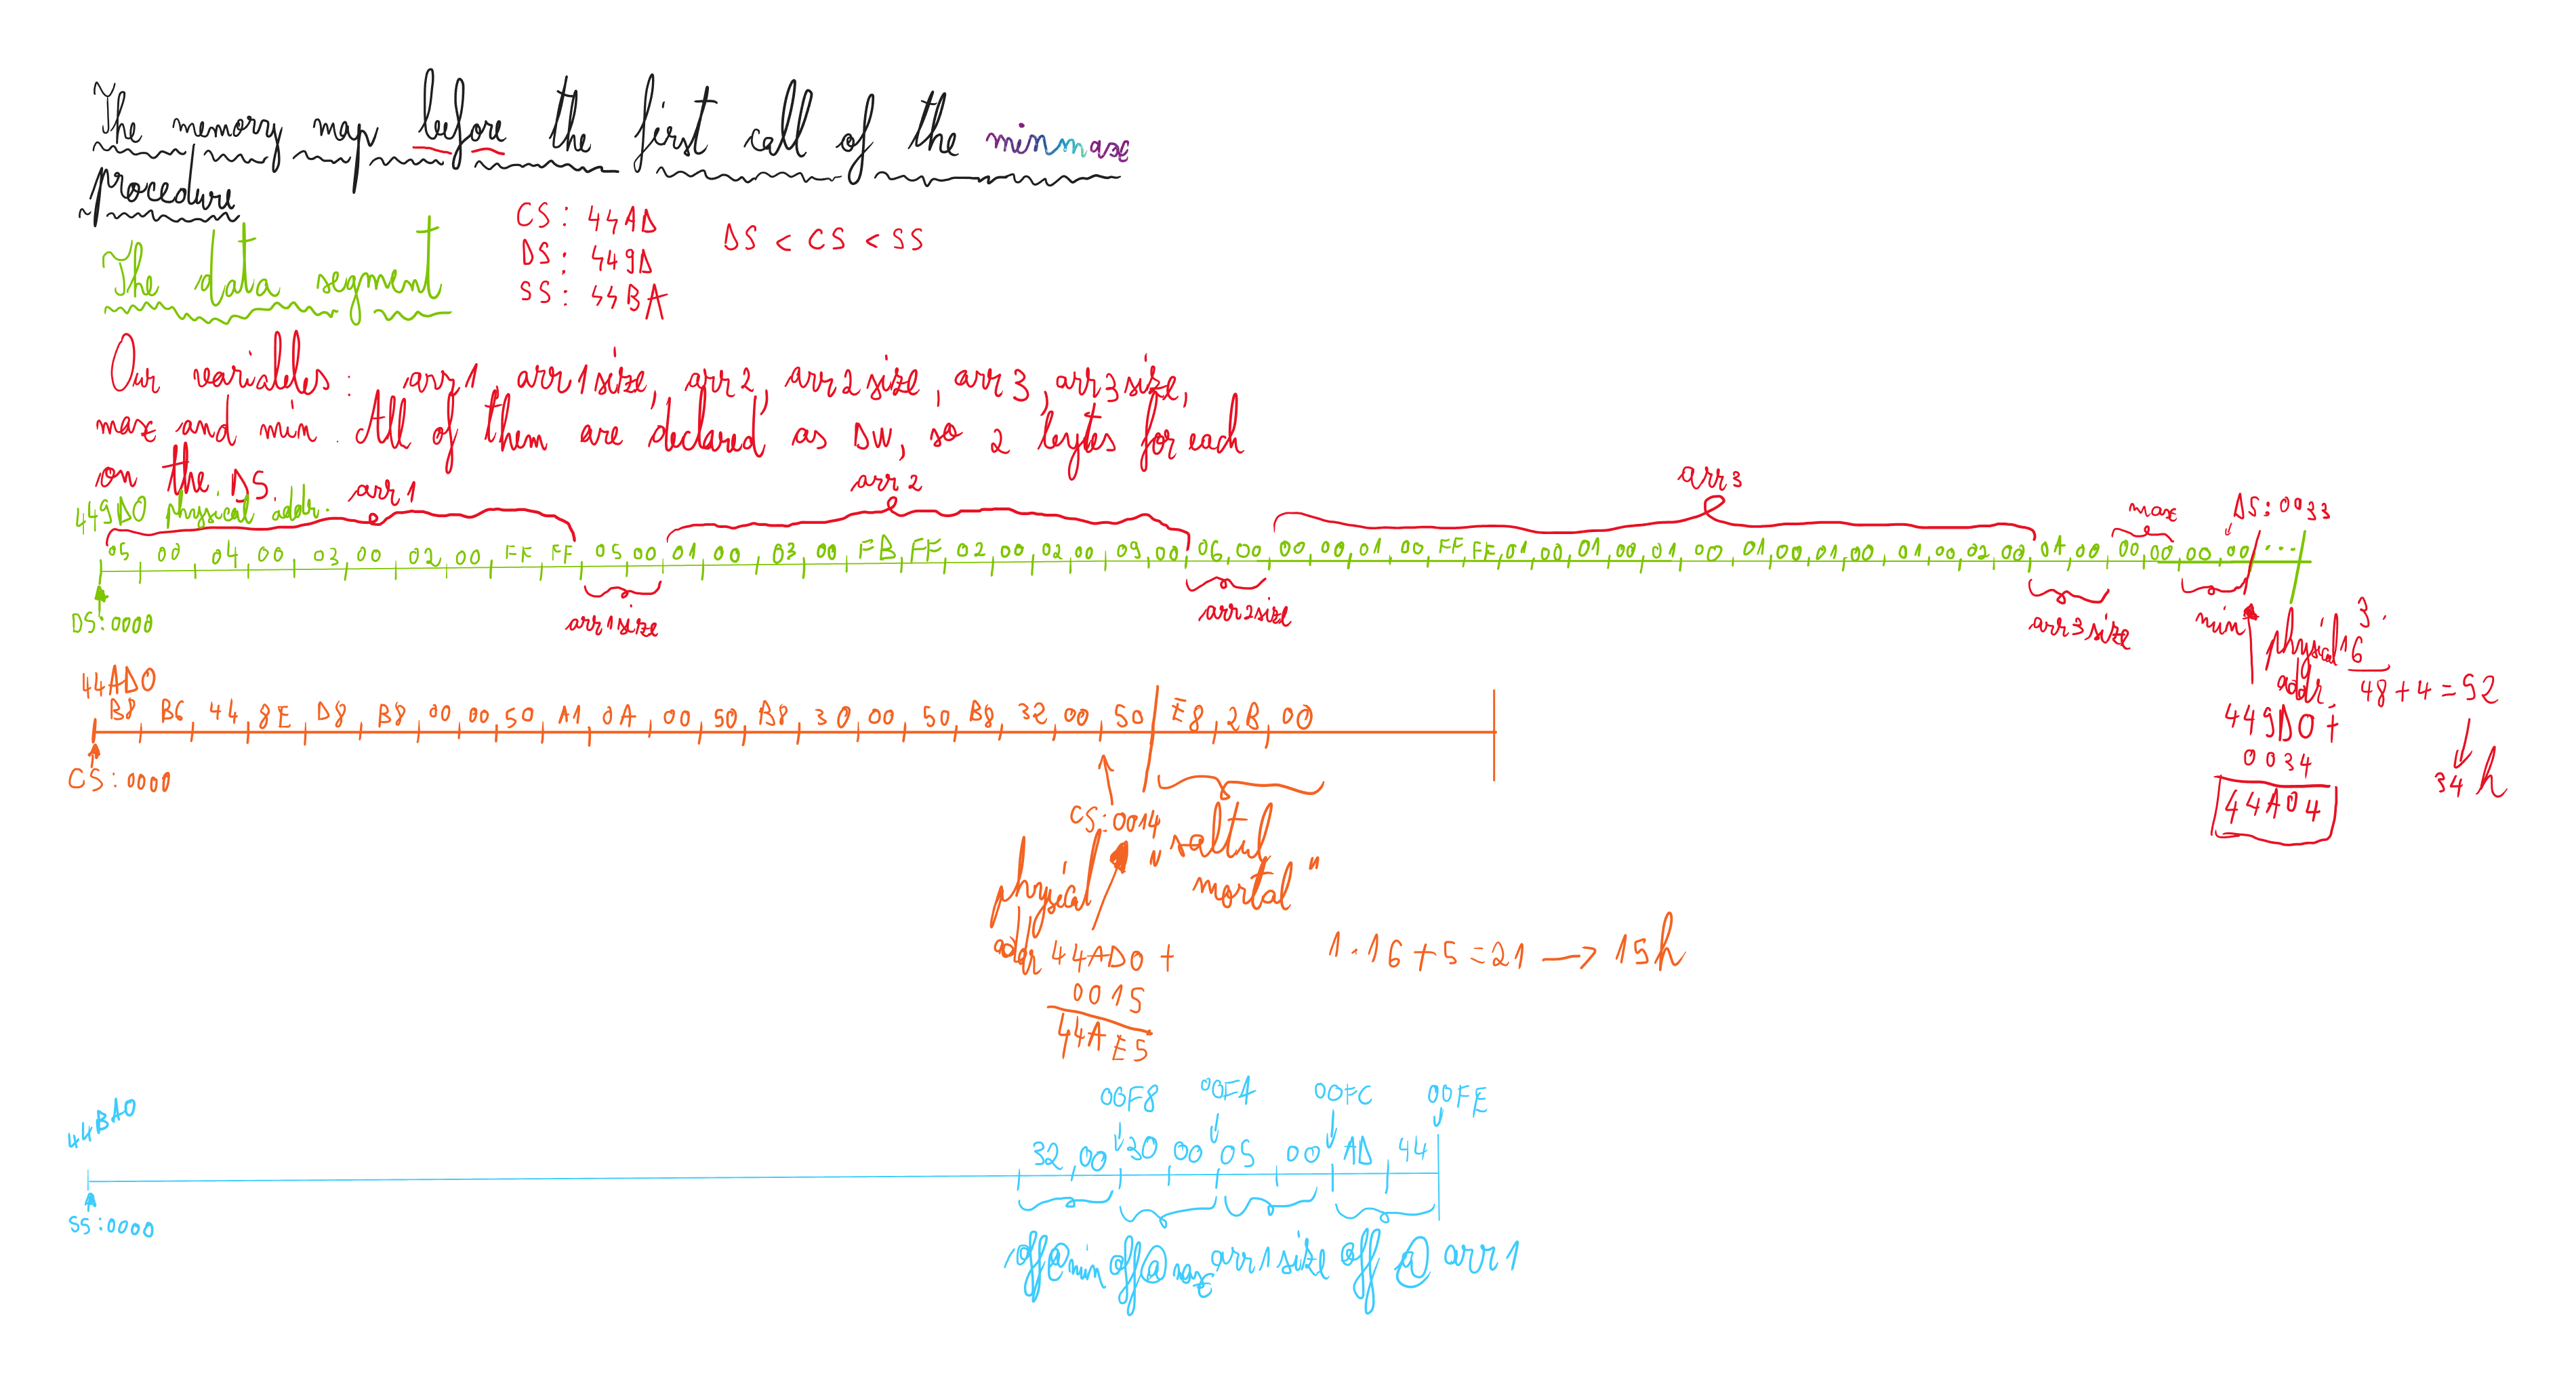 The memory map before the first call of the minmax
procedure
CS: 44AD
DS: 449D
SS: 44BA
DS < CS < SS
The data segment
Our variables: arr1, arr1size, arr2, arr2size, arr3, arr3size,
max and min. All of them are declared as DW, so 2 bytes for each
on the DS.
449D0 physical addr.
arr1
arr2
arr3
max
DS:0033
05 00 04 00 03 00 02 00 FF FF 05 00 01 00 03 00 FB FF 02 00 02 00 09 00 06 00 00 00 01 00 FF FF 01 00 01 00 01 00 01 00 01 00 01 00 02 00 0A 00 00 00 00 00 ...
DS:0000
arr1size
arr2size
arr3size
min
physical
addr.
449D0 +
0034
44A04
3.
16
48+4=52
34 h
44AD0
B8 B6 44 8E D8 B8 00 00 50 A1 0A 00 50 B8 30 00 50 B8 32 00 50 E8 2B 00
CS:0000
CS:0014
"saltul
mortal"
physical
addr 44AD0 +
0015
44AE5
1.16+5=21 → 15h
44BA0
00F8 00FA 00FC 00FE
32 00 30 00 05 00 AD 44
SS:0000
off@min off@max arr1size off @ arr1